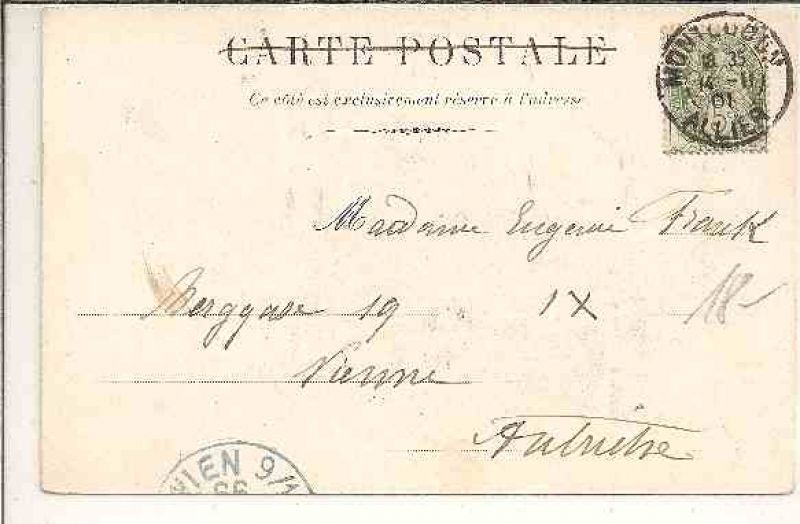 CARTE POSTALE
Ce côté est exclusivement réservé à l'adresse
MONTLUÇON
18 35
14 -11
01
ALLIER
Madame Eugenie Frank
Berggasse 19 IX 18-
Vienne
Autriche
WIEN 9/1
66